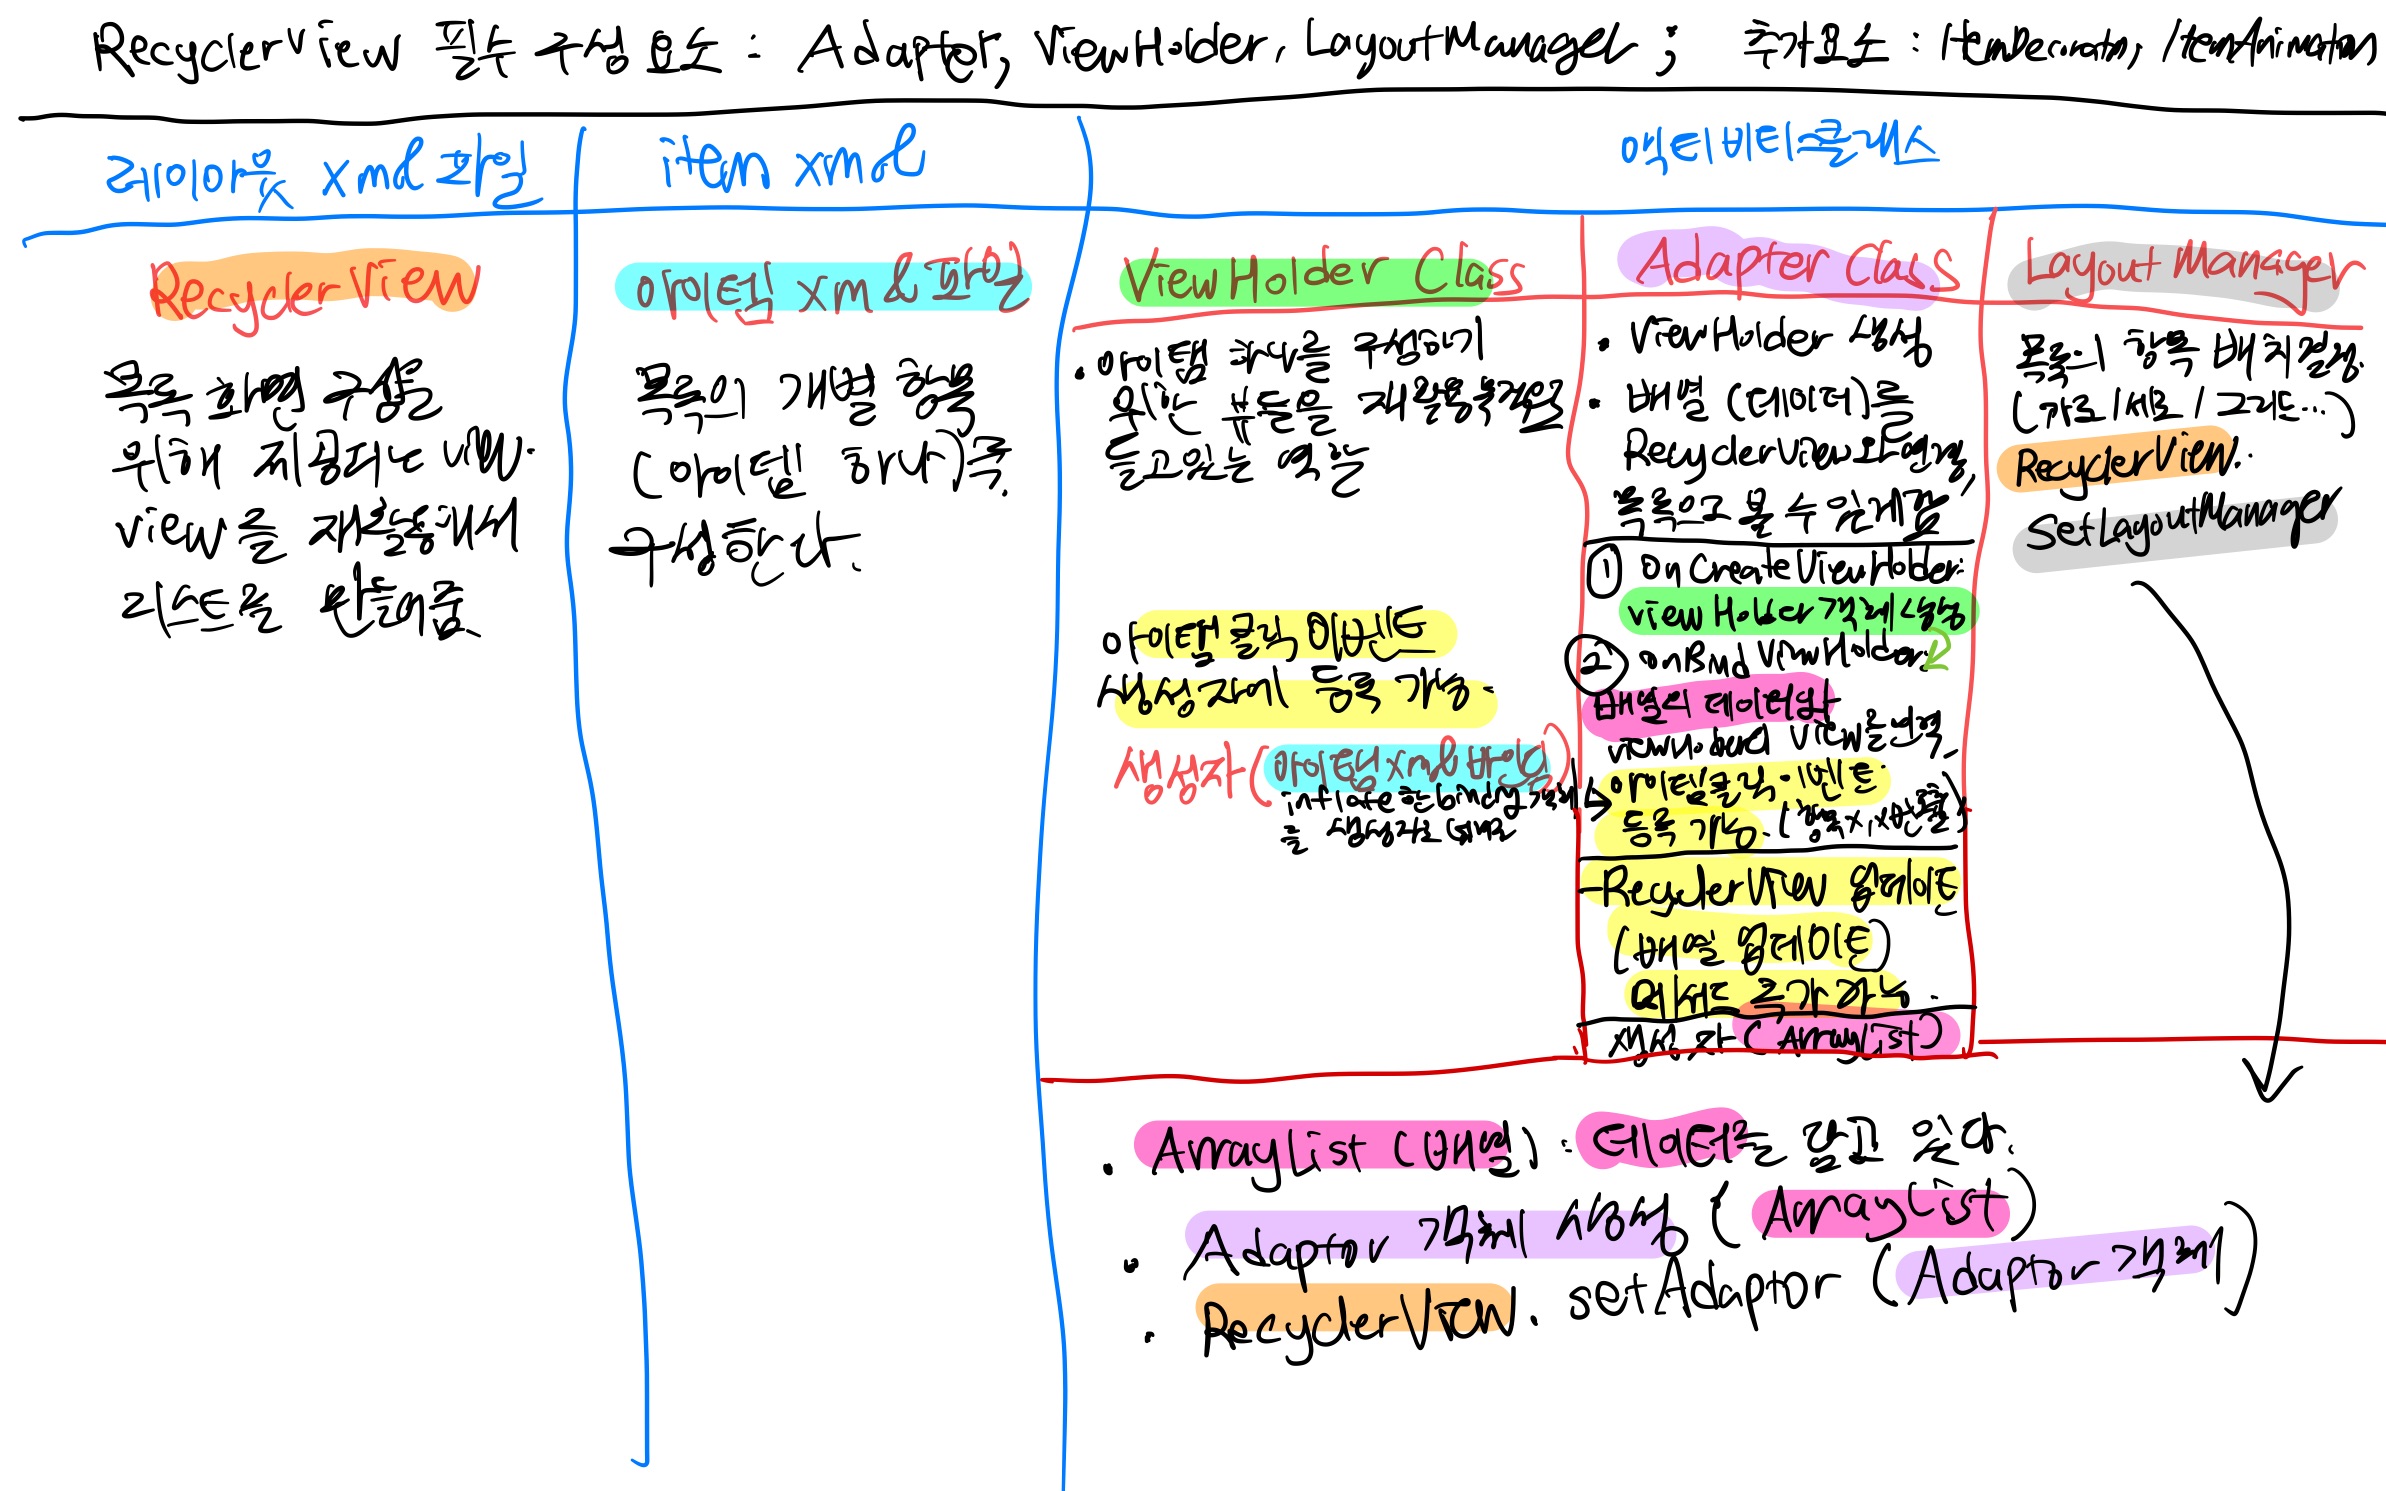 RecyclerView 필수 구성 요소 : Adaptor, ViewHolder, LayoutManager ; 추가요소 : ItemDecoration, ItemAnimation
레이아웃 xml 파일
item xml
액티비티클래스
RecyclerView
목록 화면 구성을
위해 제공되는 view.
view를 재활용해서
리스트를 만들어줌.
아이템 xml 파일
목록의 개별 항목
(아이템 하나)를
구성한다.
ViewHolder Class
• 아이템 하나를 구성하기
위한 뷰들을
들고있는 역할
아이템 클릭 이벤트
생성자에 등록 가능.
생성자(아이템xml바인딩)
inflate한 binding 객체
를 생성자로
Adapter Class
• ViewHolder 생성
• 배열 (데이터)를
RecyclerView와 연결,
목록으로 볼 수 있게함
① onCreateViewHolder:
viewHolder 객체 생성
② onBindViewHolder:
배열의 데이터와
viewHolder의 view를 연결
→ 아이템클릭 이벤트
등록 가능.
- RecyclerView 업데이트
(배열 업데이트)
메서드 추가 가능.
생성자 (ArrayList)
LayoutManager
목록의 항목 배치결정.
(가로/세로/그리드...)
RecyclerView.
SetLayoutManager
• ArrayList (배열) : 데이터를 담고 있다.
• Adaptor 객체 생성 (ArrayList)
• RecyclerView. setAdaptor (Adaptor 객체)